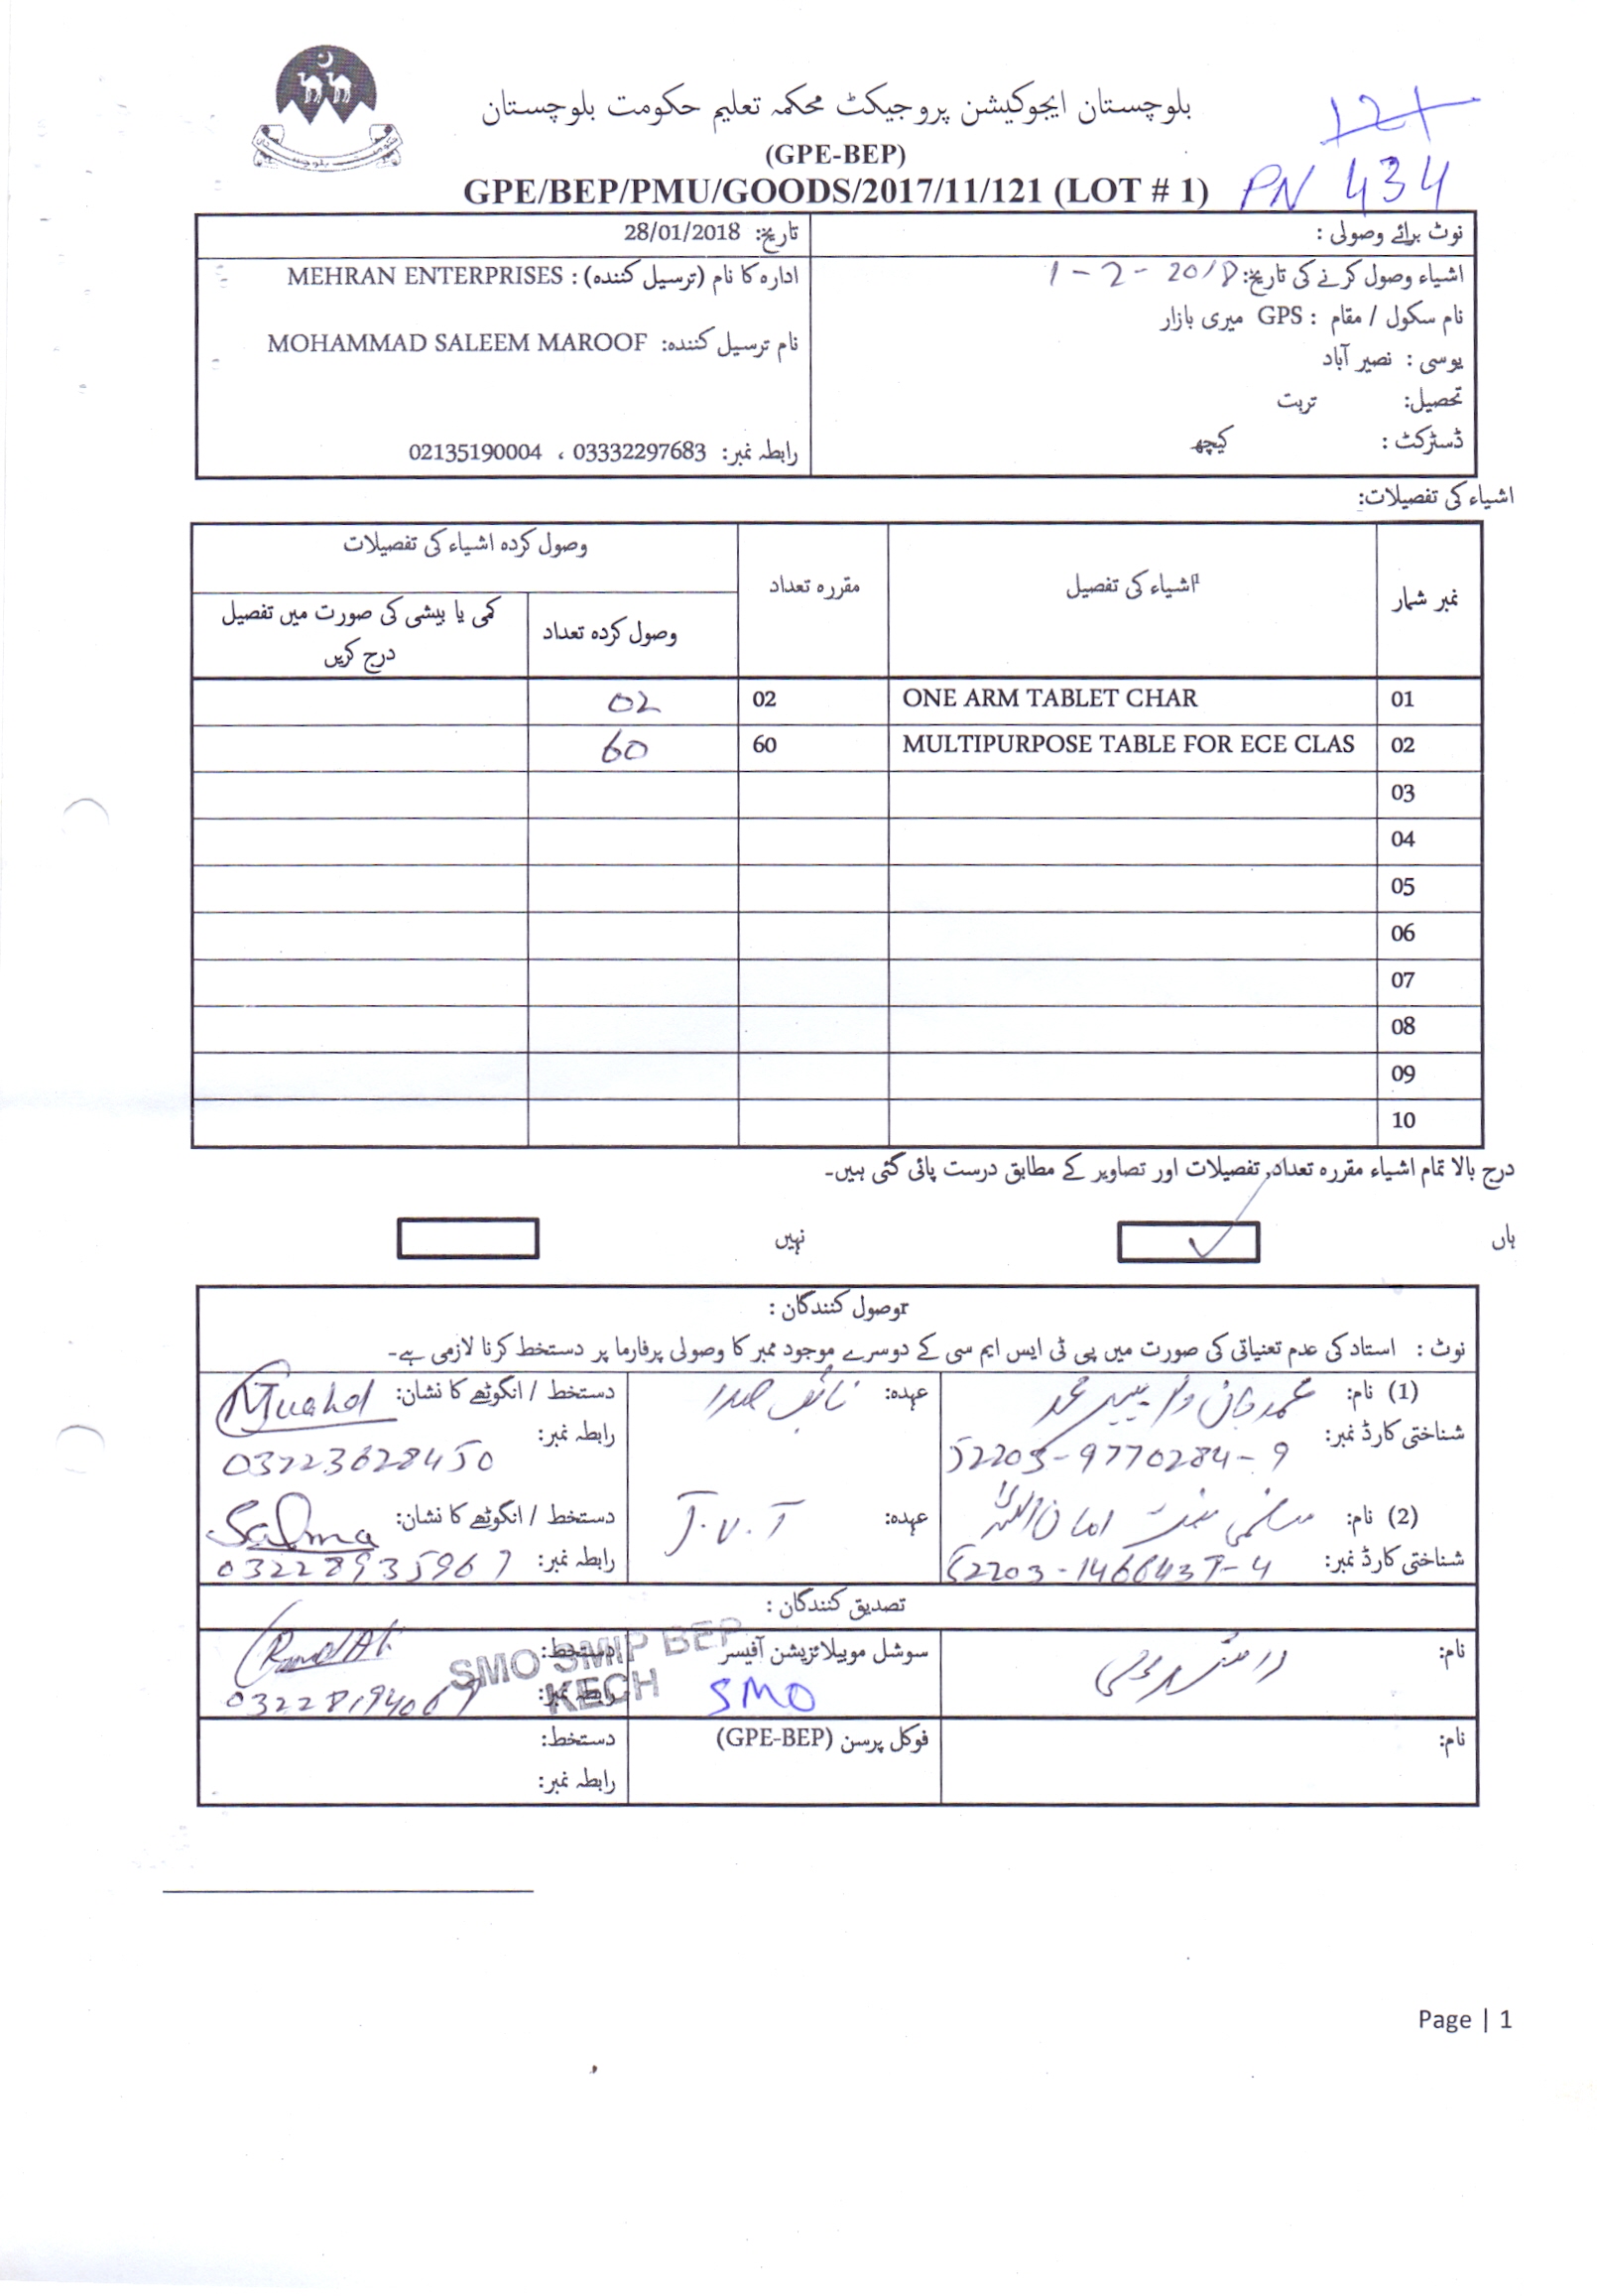 بلوچستان ایجوکیشن پروجیکٹ محکمہ تعلیم حکومت بلوچستان
(GPE-BEP)
GPE/BEP/PMU/GOODS/2017/11/121 (LOT # 1)
121
PN 434
نوٹ برائے وصولی :
تاریخ: 28/01/2018
اشیاء وصول کرنے کی تاریخ: 1-2-2018
نام سکول / مقام : GPS میری بازار
یوسی : نصیر آباد
تحصیل: تربت
ڈسٹرکٹ : کیچ
ادارہ کا نام (ترسیل کنندہ) : MEHRAN ENTERPRISES
نام ترسیل کنندہ: MOHAMMAD SALEEM MAROOF
رابطہ نمبر: 03332297683 ، 02135190004
اشیاء کی تفصیلات:
نمبر شمار
اشیاء کی تفصیل
مقررہ تعداد
وصول کردہ اشیاء کی تفصیلات
وصول کردہ تعداد
کمی یا بیشی کی صورت میں تفصیل درج کریں
01 ONE ARM TABLET CHAR 02 02
02 MULTIPURPOSE TABLE FOR ECE CLAS 60 60
03
04
05
06
07
08
09
10
درج بالا تمام اشیاء مقررہ تعداد, تفصیلات اور تصاویر کے مطابق درست پائی گئی ہیں۔
ہاں ✓
نہیں
rوصول کنندگان :
نوٹ : استاد کی عدم تعنیاتی کی صورت میں پی ٹی ایس ایم سی کے دوسرے موجود ممبر کا وصولی پرفارما پر دستخط کرنا لازمی ہے۔
(1) نام: محمد جان ولد پیر محمد
عہدہ: نائب صدر
دستخط / انگوٹھے کا نشان:
شناختی کارڈ نمبر: 52203-9770284-9
رابطہ نمبر: 03223628450
(2) نام: سلمی بنت امان اللہ
عہدہ: J.V.T
دستخط / انگوٹھے کا نشان: Salma
شناختی کارڈ نمبر: 52203-1466437-4
رابطہ نمبر: 03228935967
تصدیق کنندگان :
نام:
سوشل موبیلائزیشن آفیسر
SMO
دستخط:
رابطہ نمبر: 03228194069
SMO SMIP BEP
KECH
نام:
فوکل پرسن (GPE-BEP)
دستخط:
رابطہ نمبر:
Page | 1